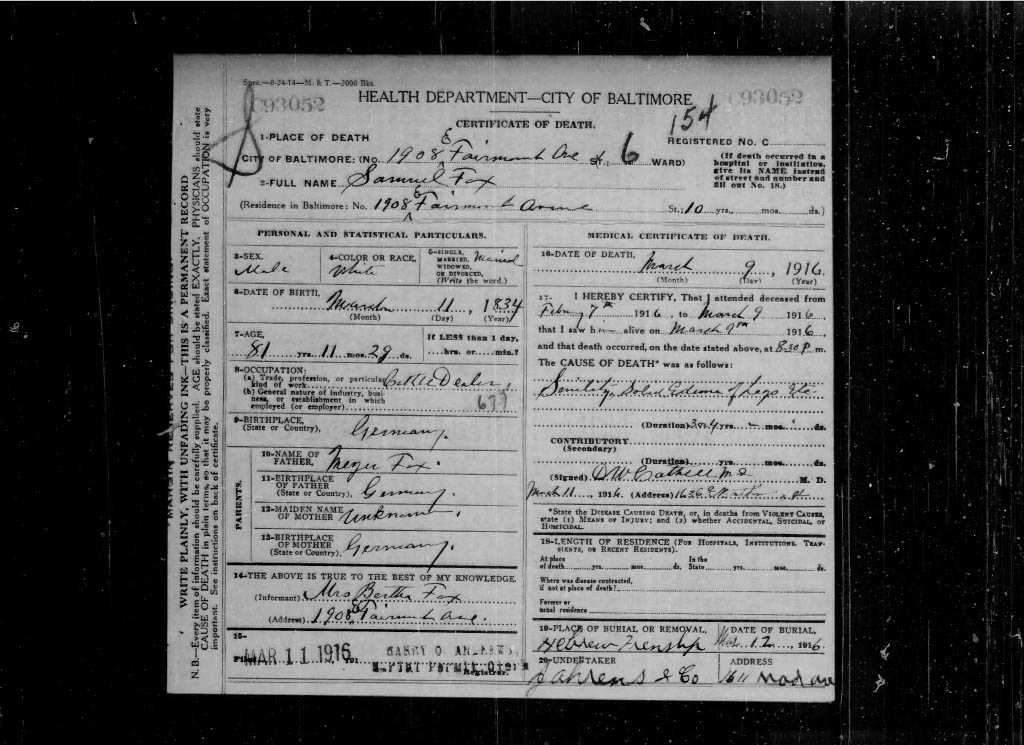 Spec.—8-24-14—M. & T.—2000 Bks.
C93052
HEALTH DEPARTMENT—CITY OF BALTIMORE
C93052
CERTIFICATE OF DEATH.
154
1-PLACE OF DEATH
REGISTERED NO. C
CITY OF BALTIMORE: (No. 1908 E Fairmount Ave St.; 6 WARD)
(If death occurred in a
hospital or institution,
give its NAME instead
of street and number and
fill out No. 18.)
2-FULL NAME Samuel Fox
(Residence in Baltimore: No. 1908 E Fairmount Avenue St.; 10 yrs., mos. ds.)
PERSONAL AND STATISTICAL PARTICULARS.
3-SEX.
Male
4-COLOR OR RACE,
White
5-SINGLE,
MARRIED, Married
WIDOWED,
OR DIVORCED,
(Write the word.)
6-DATE OF BIRTH,
11, 1834
(Month) (Day) (Year)
7-AGE,
81 yrs. 11 mos. 29 ds.
If LESS than 1 day,
hrs. or min.?
8-OCCUPATION:
(a) Trade, profession, or particular
kind of work Cattle Dealer,
(b) General nature of industry, busi-
ness, or establishment in which
employed (or employer)
9-BIRTHPLACE,
(State or Country), Germany.
PARENTS.
10-NAME OF
FATHER, Meyer Fox.
11-BIRTHPLACE
OF FATHER
(State or Country), Germany.
12-MAIDEN NAME
OF MOTHER Unknown.
13-BIRTHPLACE
OF MOTHER
(State or Country), Germany.
14-THE ABOVE IS TRUE TO THE BEST OF MY KNOWLEDGE.
(Informant) Mrs Bertha Fox
(Address) 1908 E Fairmount Ave.
15-
MAR 11 1916 191
Registrar.
MEDICAL CERTIFICATE OF DEATH.
16-DATE OF DEATH,
March 9, 1916
(Month) (Day) (Year)
17- I HEREBY CERTIFY, That I attended deceased from
7th 1916, to March 9 1916,
that I saw h alive on March 9th 1916
and that death occurred, on the date stated above, at 8.30 P m.
The CAUSE OF DEATH* was as follows:
Senility, Edema of Legs Etc
(Duration) 3 or 4 yrs. mos. ds.
CONTRIBUTORY
(Secondary)
(Duration) yrs. mos. ds.
(Signed) D W Cathell M D M. D.
March 11, 1916 (Address) 1636 E
*State the DISEASE CAUSING DEATH, or, in deaths from VIOLENT CAUSES,
state (1) MEANS OF INJURY; and (2) whether ACCIDENTAL, SUICIDAL, or
HOMICIDAL.
18-LENGTH OF RESIDENCE (FOR HOSPITALS, INSTITUTIONS, TRAN-
SIENTS, OR RECENT RESIDENTS).
At place
of death yrs. mos. ds.
In the
State yrs. mos. ds.
Where was disease contracted,
if not at place of death?
Former or
usual residence
19-PLACE OF BURIAL OR REMOVAL,
Hebrew Frenship
DATE OF BURIAL,
Mar 12, 1916
20-UNDERTAKER
J Ahrens & Co
ADDRESS
1611 Mad ave
WRITE PLAINLY, WITH UNFADING INK—THIS IS A PERMANENT RECORD
N. B.—Every item of information should be carefully supplied. AGE should be stated EXACTLY. PHYSICIANS should state
CAUSE OF DEATH in plain terms, so that it may be properly classified. Exact statement of OCCUPATION is very
important. See instructions on back of certificate.